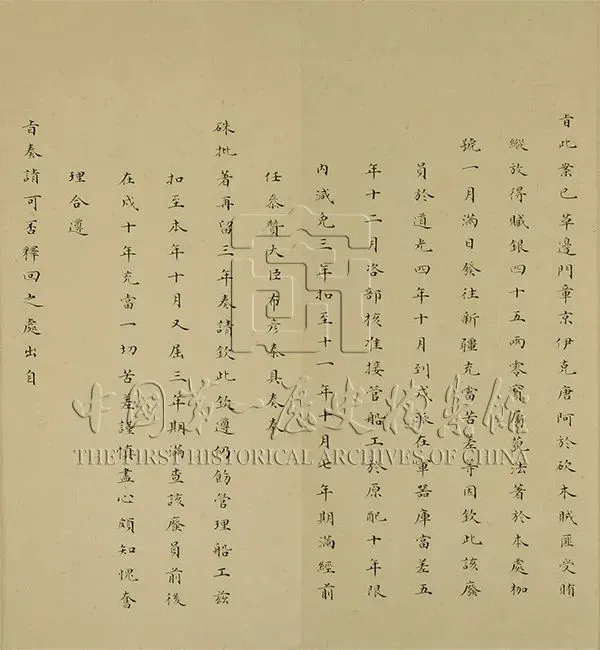 旨此案已革邊門章京伊克唐阿於砍木賊匪受賄
縱放得贓銀四十五兩零實屬藐法著於本處枷
號一月滿日發往新疆充當苦差等因欽此該廢
員於道光四年十月到戍派在軍器庫當差五
年十二月咨部核准接管船工於原配十年限
內減免三年扣至十一年十月七年期滿經前
任叅贊大臣布彥泰具奏奉
硃批著再留三年奏請欽此欽遵仍飭管理船工茲
扣至本年十月又屆三年期滿查該廢員前後
在戍十年充當一切苦差謹慎盡心頗知愧奮
理合遵
旨奏請可否釋回之處出自
中國第一歷史檔案館
THE FIRST HISTORICAL ARCHIVES OF CHINA